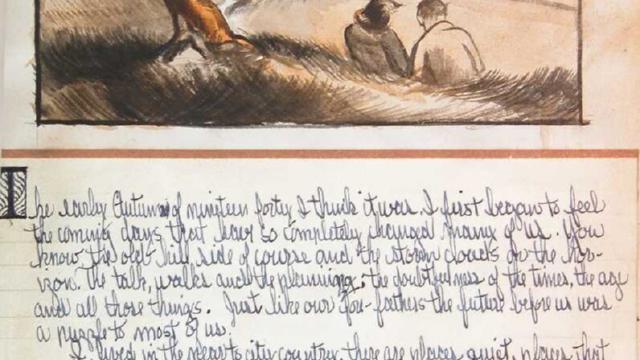 The early Autumn of nineteen forty I think it was. I first began to feel
the coming days that have so completely changed many of us. You
know the old hill side of course and the storm clouds on the hor-
izon. The talk, walks and the planning, the doubtedness of the times, the age
and all those things. Just like our fore-fathers the future before us was
a puzzle to most of us.
I lived in the near to city country, there are places, quiet, that